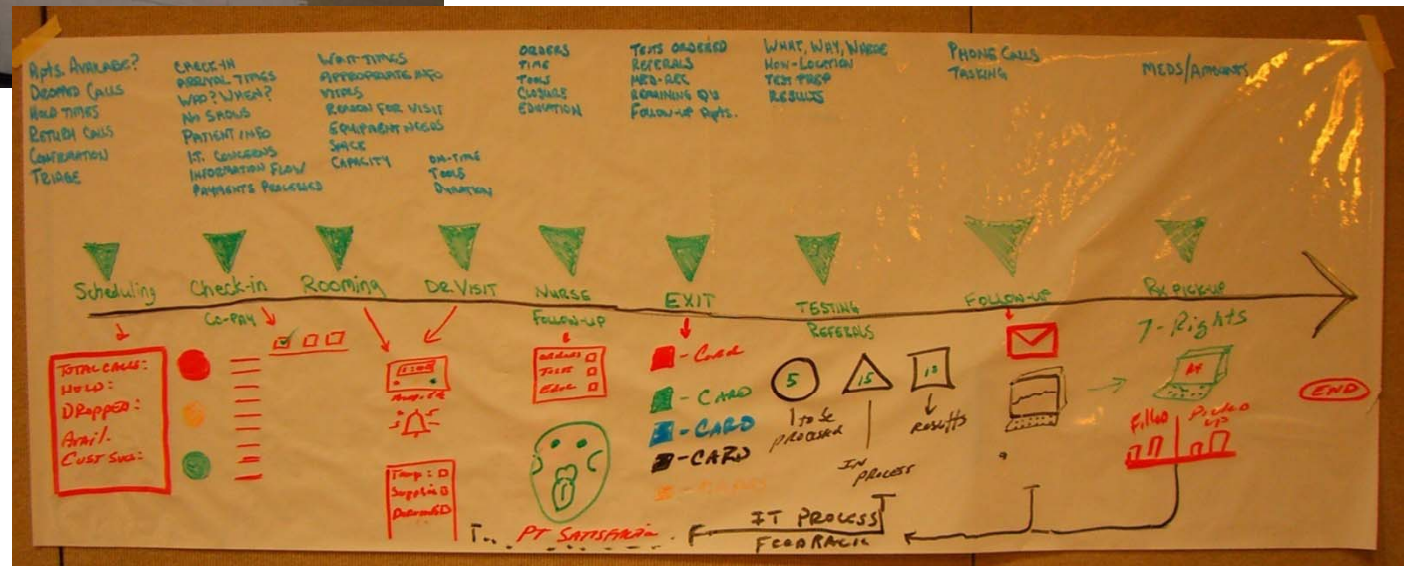 Apts. Available?
Dropped Calls
Hold Times
Return Calls
Confirmation
Triage
Check-in
Arrival Times
Who? When?
No Shows
Patient Info
I.T. Concerns
Information Flow
Payments Processed
Wait-Times
Appropriate Info
Vitals
Reason for Visit
Equipment Needs
Space
Capacity
On-Time
Tools
Duration
Orders
Time
Tools
Closure
Education
Tests Ordered
Referrals
Med-Rec
Remaining Q's
Follow-up Apts.
What, Why, Where
How-Location
Test Prep
Results
Phone Calls
Tasking
Meds/Amounts
Scheduling
Check-in
Rooming
Dr. Visit
Nurse
Exit
Testing
Follow-up
Rx Pick-up
Co-pay
Follow-up
Referals
7-Rights
Total Calls:
Hold:
Dropped:
Avail.
Cust Succ:
Orders
Tests
Educ
- Card
- Card
- Card
- Card
5
15
to be
processed
In
Process
Results
Filled
Picked
up
End
Temp:
Supplies
PT Satisfaction
IT Process
Feedback